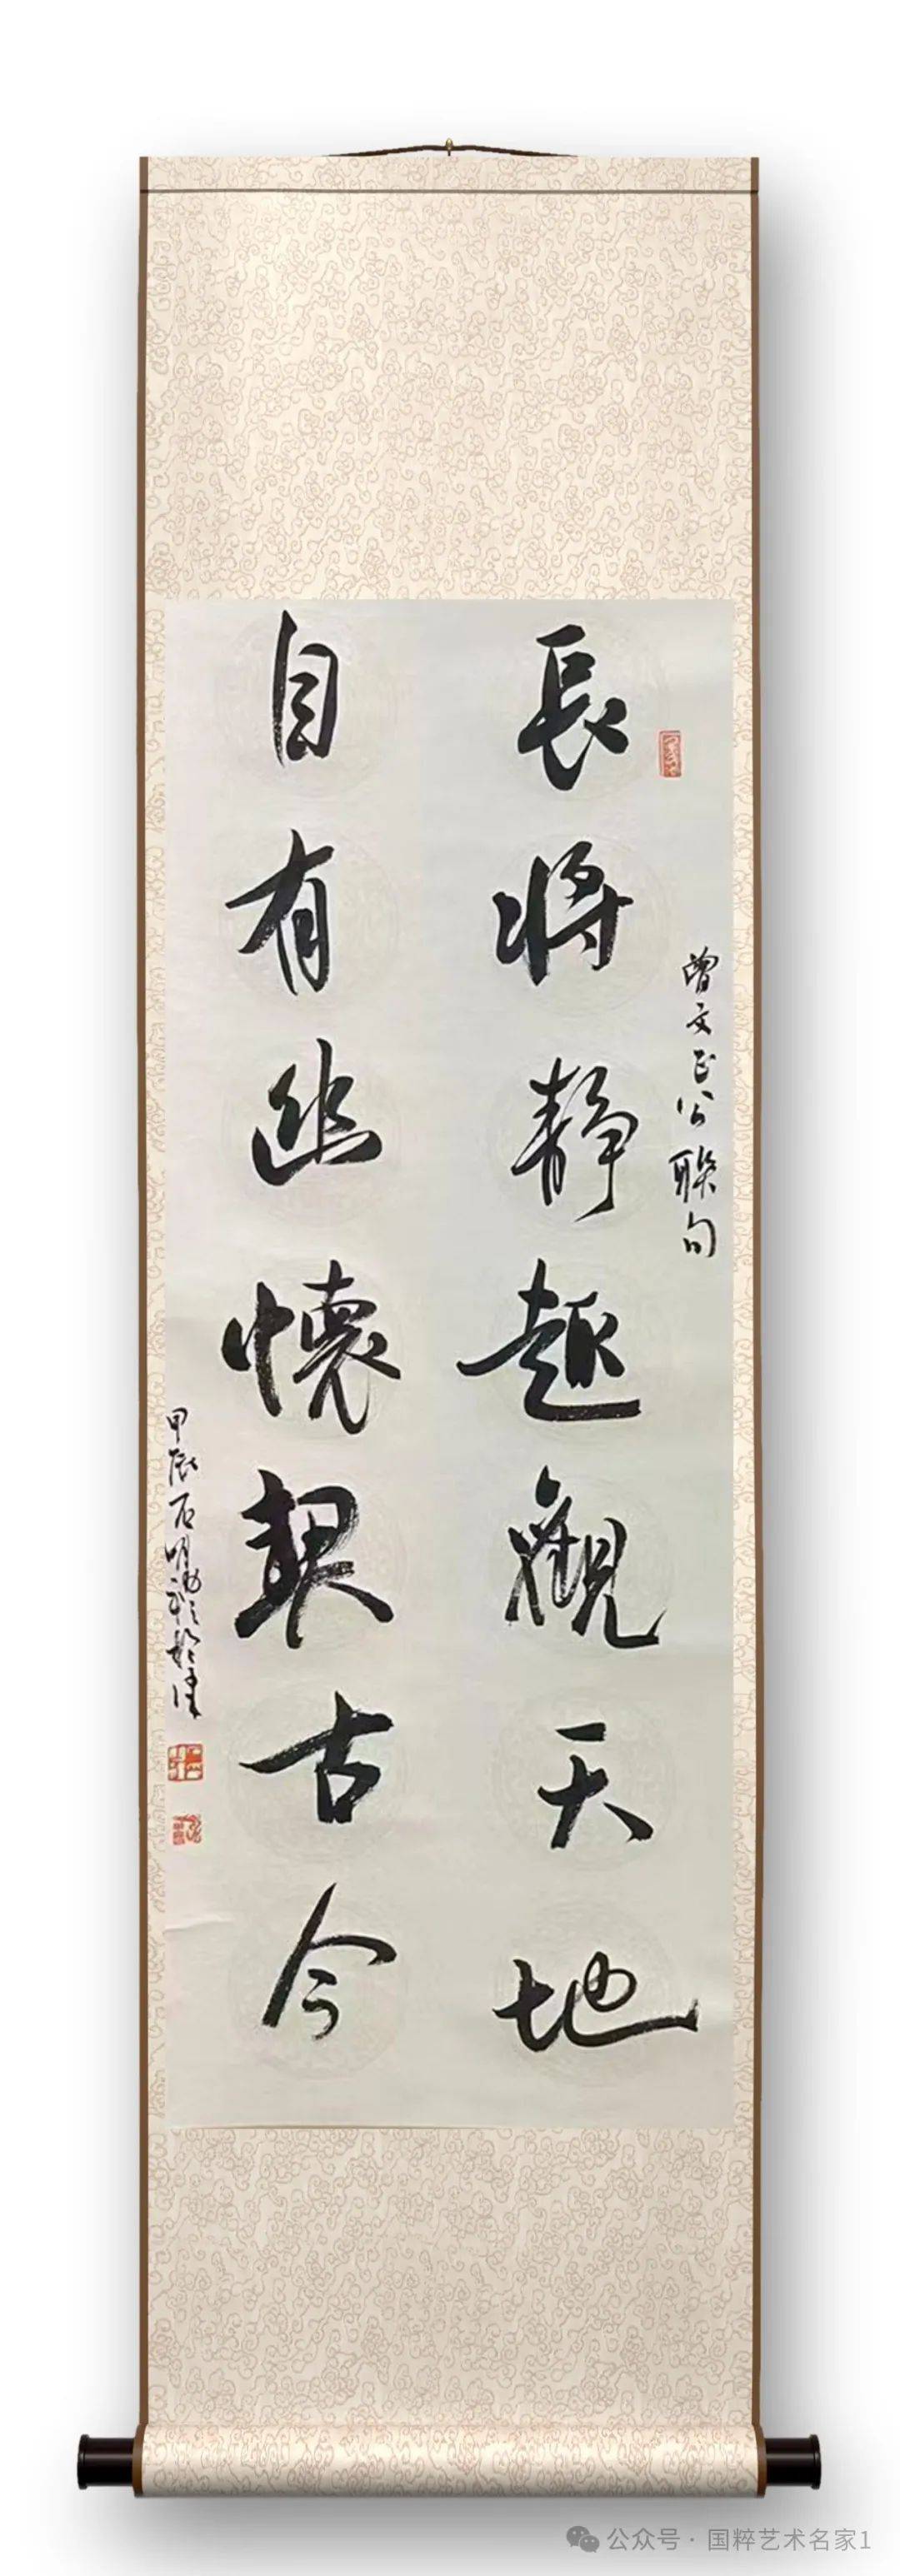 曾文正公聯句
長將靜趣觀天地
自有幽懷契古今
甲辰石明
公众号 · 国粹艺术名家1